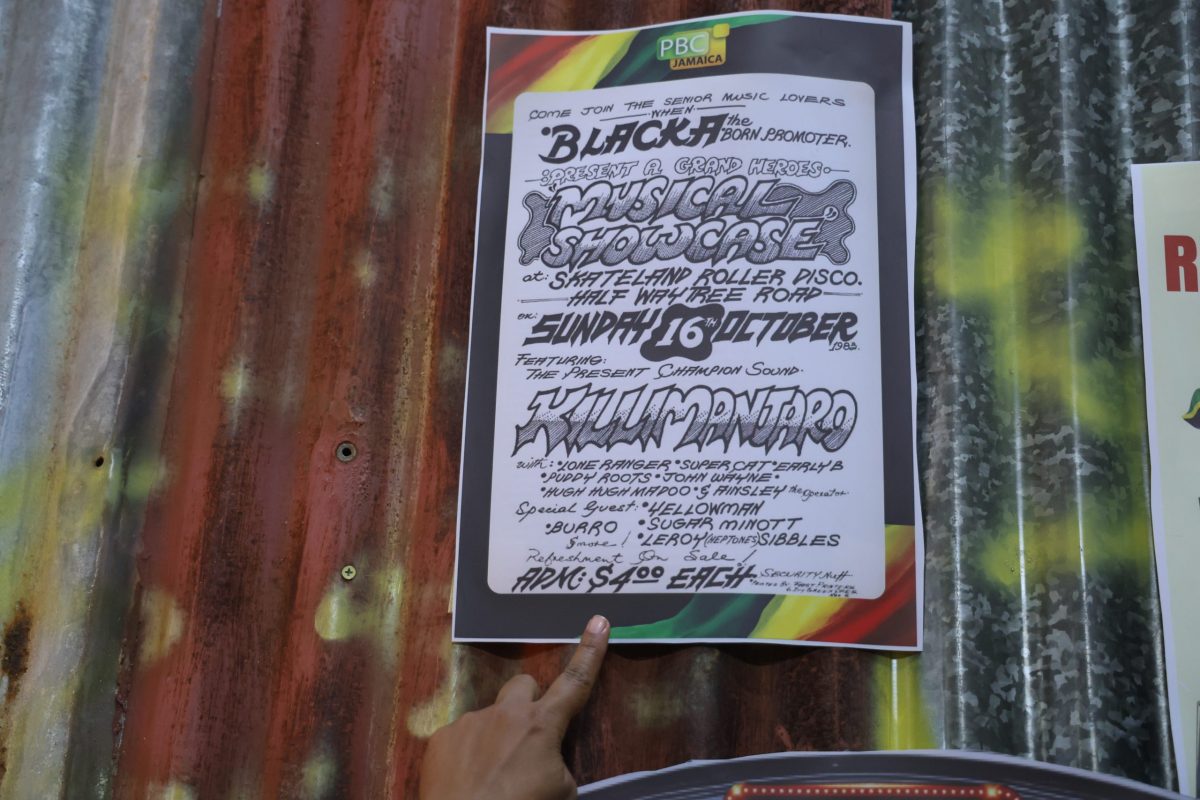 PBC
JAMAICA
COME JOIN THE SENIOR MUSIC LOVERS
WHEN
"BLACKA the BORN PROMOTER.
:PRESENT A GRAND HEROES
"MUSICAL
SHOWCASE"
at: SKATELAND ROLLER DISCO.
HALF WAY TREE ROAD
on: SUNDAY 16TH OCTOBER
1983.
FEATURING:
THE PRESENT CHAMPION SOUND.
KILLIMANJARO
with: •LONE RANGER •SUPER CAT •EARLY B
•PUDDY ROOTS •JOHN WAYNE•
•HUGH HUGH MADOO •& AINSLEY the Operator
Special Guest: •YELLOWMAN
•BURRO •SUGAR MINOTT
& more! •LEROY (HEPTONES) SIBBLES
Refreshment On Sale!
ADM: $4.00 EACH SECURITY Nuff
R